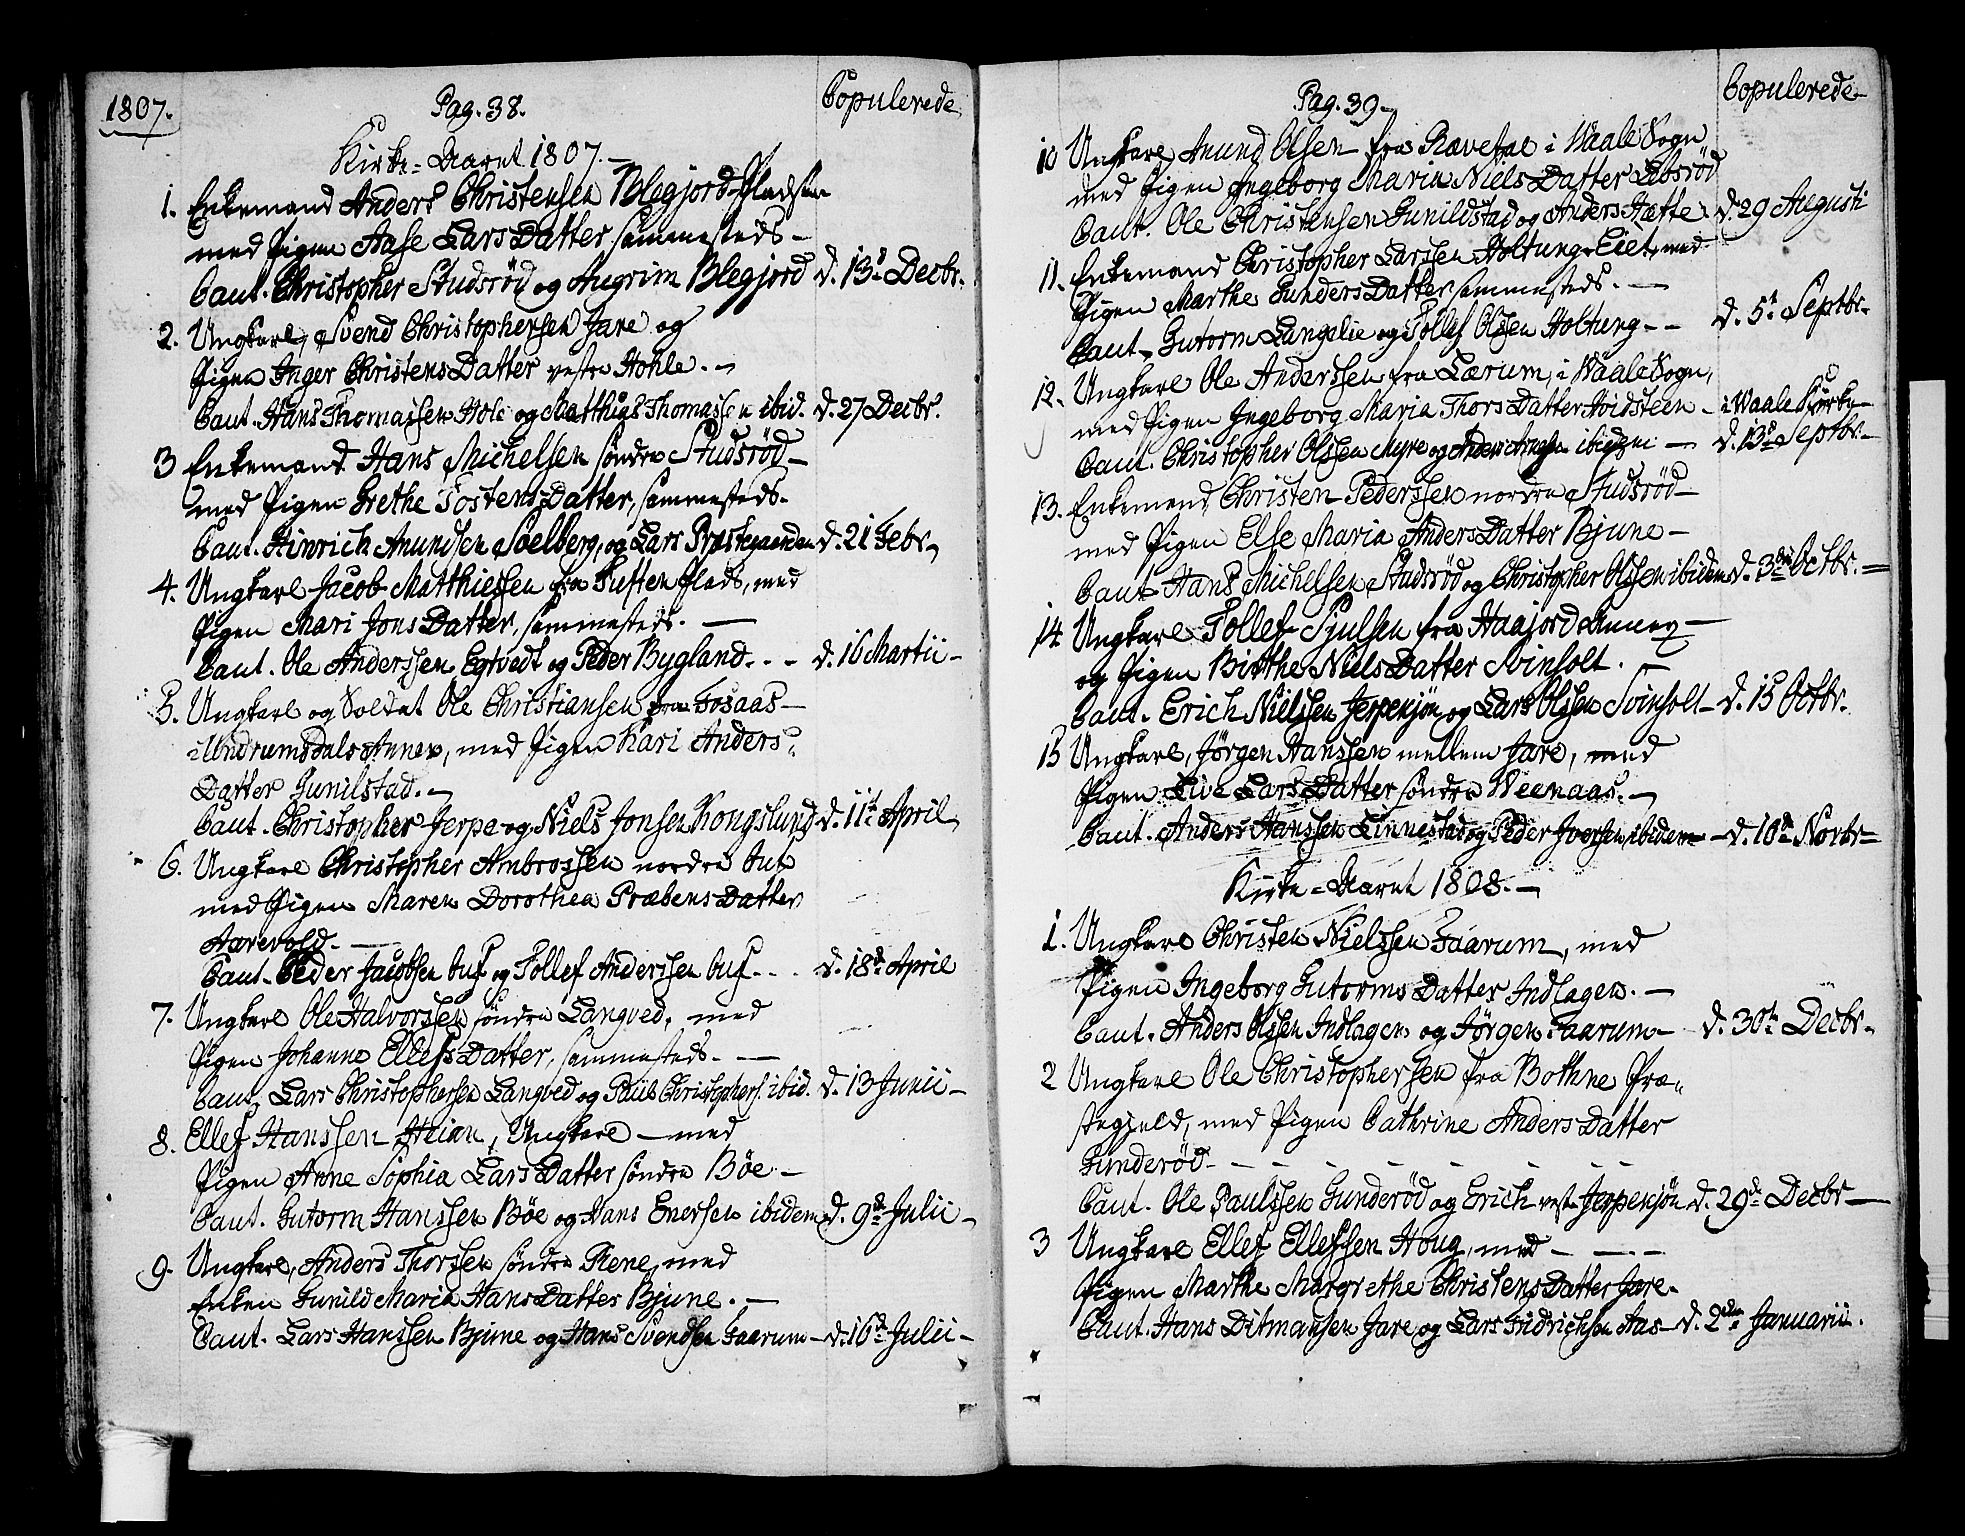 1807.
Pag. 38.
Copulerede
Kirke-Aaret 1807.-
1. Enkemand Anders Christensen Blegjord-Pladsen
med Pigen Aase Lars Datter sammesteds-
Caut. Christopher Studsrød og Angrim Blegjord d. 13d Decbr.
2. Ungkarl, Svend Christophersen Jare og
Pigen Inger Christens Datter vestre Hohle.-
Caut. Hans Thomassen Hole og Matthias Thomassen ibid. d. 27 Decbr.
3 Enkemand Hans Michelsen søndre Studsrød-
med Pigen Grethe Tostens-Datter, sammesteds-
Caut. Hinrich Amundsen Soelberg, og Lars Præstegaarden d. 21 Febr.
4. Ungkarl Jacob Matthiessen fra Tuften Plads, med
Pigen Mari Jons Datter, sammesteds.
Caut. Ole Anderssen Egtvedt og Peder Bygland... d. 16 Martii-
5. Ungkarl og Soldat Ole Christiansen fra Fosaas-
i Undrumsdals Annex, med Pigen Kari Anders
Datter Gunilstad.-
Caut. Christopher Jerpe og Niels Jonsen Kongslund d. 11t April
6. Ungkarl Christopher Ambrossen nordre Buf
med Pigen Maren Dorothea Præbens Datter
Aarevold.
Caut. Peder Jacobsen Buf og Tollef Anderssen Buf... d. 18d April
7. Ungkarl Ole Halvorssen søndre Langved, med
Pigen Johanne Ellefs Datter, sammesteds.
Caut. Lars Christophersen Langved og Paul Christophers. ibid. d. 13 Junii-
8. Ellef Hanssen, Ungkarl - med
Pigen Anne Sophia Lars Datter søndre Bøe-
Caut. Gutorm Hanssen Bøe og Hans Enersen ibidem d. 9d Julii-
9. Ungkarl, Anders Thorssen søndre Rene, med
Enken Gunild Maria Hans Datter Bjune.-
Caut. Lars Hanssen Bjune og Hans Svendsen Faarum-d. 16d Julii-
Pag. 39-
Copulerede-
10 Ungkarl Amund Olsen fra Rævetal i Waale Sogn
med Pigen Ingeborg Maria Niels Datter Lebsrød
Caut. Ole Christensen Gunildstad og Anders Hætte. d. 29 Augusti
11. Enkemand Christopher Larssen Holtung-Eiet, med
Pigen Marthe Gunders Datter, sammesteds.
Caut. Gutorm Langelie og Tollef Olssen Holtung-- d. 5t Septbr.
12. Ungkarl Ole Anderssen fra Lærum, i Waale Sogn,
med Pigen Ingeborg Maria Thors Datter Hvidsteen - i Waale Kirke
Caut. Christopher Olssen Myre og ibidem - d. 13d Septbr-
13. Enkemand, Christen Pederssen nordre Studsrød-
med Pigen Else Maria Anders Datter Bjune-
Caut Hans Michelsen Studsrød og Christopher Olssen ibidem d. 3die Octbr.
14 Ungkarl Tollef Sjulsen fra Haajord Annex-
og Pigen Birthe Niels Datter Svinholt.
Caut. Erich Nielssen Jerpenjøn og Lars Olssen Svinholt-d. 15 Octbr.
15 Ungkarl, Jørgen Hanssen mellem Jare, med
Pigen Live Lars Datter søndre Weenaas.-
Caut. Anders Hanssen Linnestad og Peder Iversen ibidem-d. 10de Novbr-
Kirke-Aaret 1808.-
1. Ungkarl Christen Nielssen Faarum, med
Pigen Ingeborg Gutorms Datter Indlagen.-
Caut. Anders Olssen Indlagen og Jørgen Faarum- d. 30te Decbr.
2 Ungkarl Ole Christophersen fra Bothne Præ-
stegjeld, med Pigen Cathrine Anders Datter
Gunderød-
Caut. Ole Paulssen Gunderød og Erich vest. Jerpenjøn d. 29de Decbr-
3 Ungkarl Ellef Ellefsen Houg, med
Pigen Marthe Margrethe Christens Datter Jare.
Caut. Hans Ditmansen Jare og Lars Fridrichsen Aas-d. 2den Januarii.